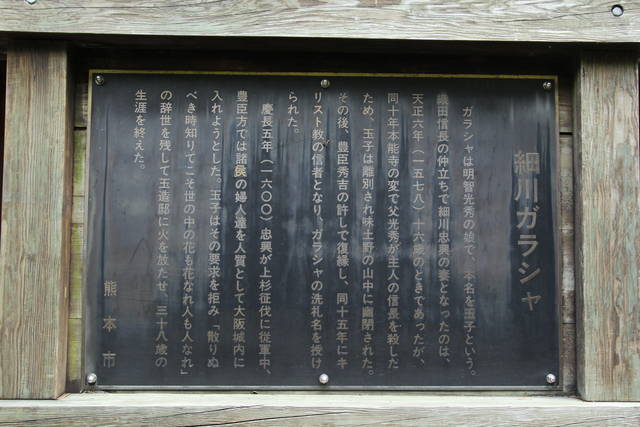 細川ガラシャ
ガラシャは明智光秀の娘で、本名を玉子という。
織田信長の仲立ちで細川忠興の妻となったのは、
天正六年(一五七八)十六歳のときであったが、
同十年本能寺の変で父光秀が主人の信長を殺した
ため、玉子は離別され味土野の山中に幽閉された。
その後、豊臣秀吉の許しで復縁し、同十五年にキ
リスト教の信者となり、ガラシャの洗礼名を授け
られた。
慶長五年(一六〇〇)忠興が上杉征伐に従軍中、
豊臣方では諸侯の婦人達を人質として大阪城内に
入れようとした。玉子はその要求を拒み「散りぬ
べき時知りてこそ世の中の花も花なれ人も人なれ」
の辞世を残して玉造邸に火を放たせ、三十八歳の
生涯を終えた。
熊本市